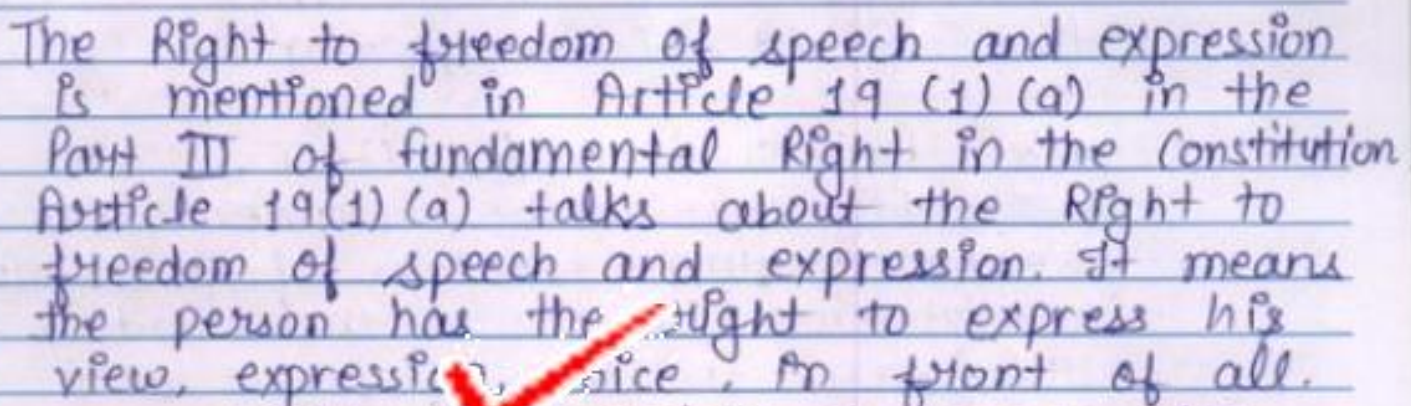 The Right to freedom of speech and expression
is mentioned in Article 19 (1) (a) in the
Part III of fundamental Right in the Constitution
Article 19(1) (a) talks about the Right to
freedom of speech and expression. It means
the person has the right to express his
view, in front of all.